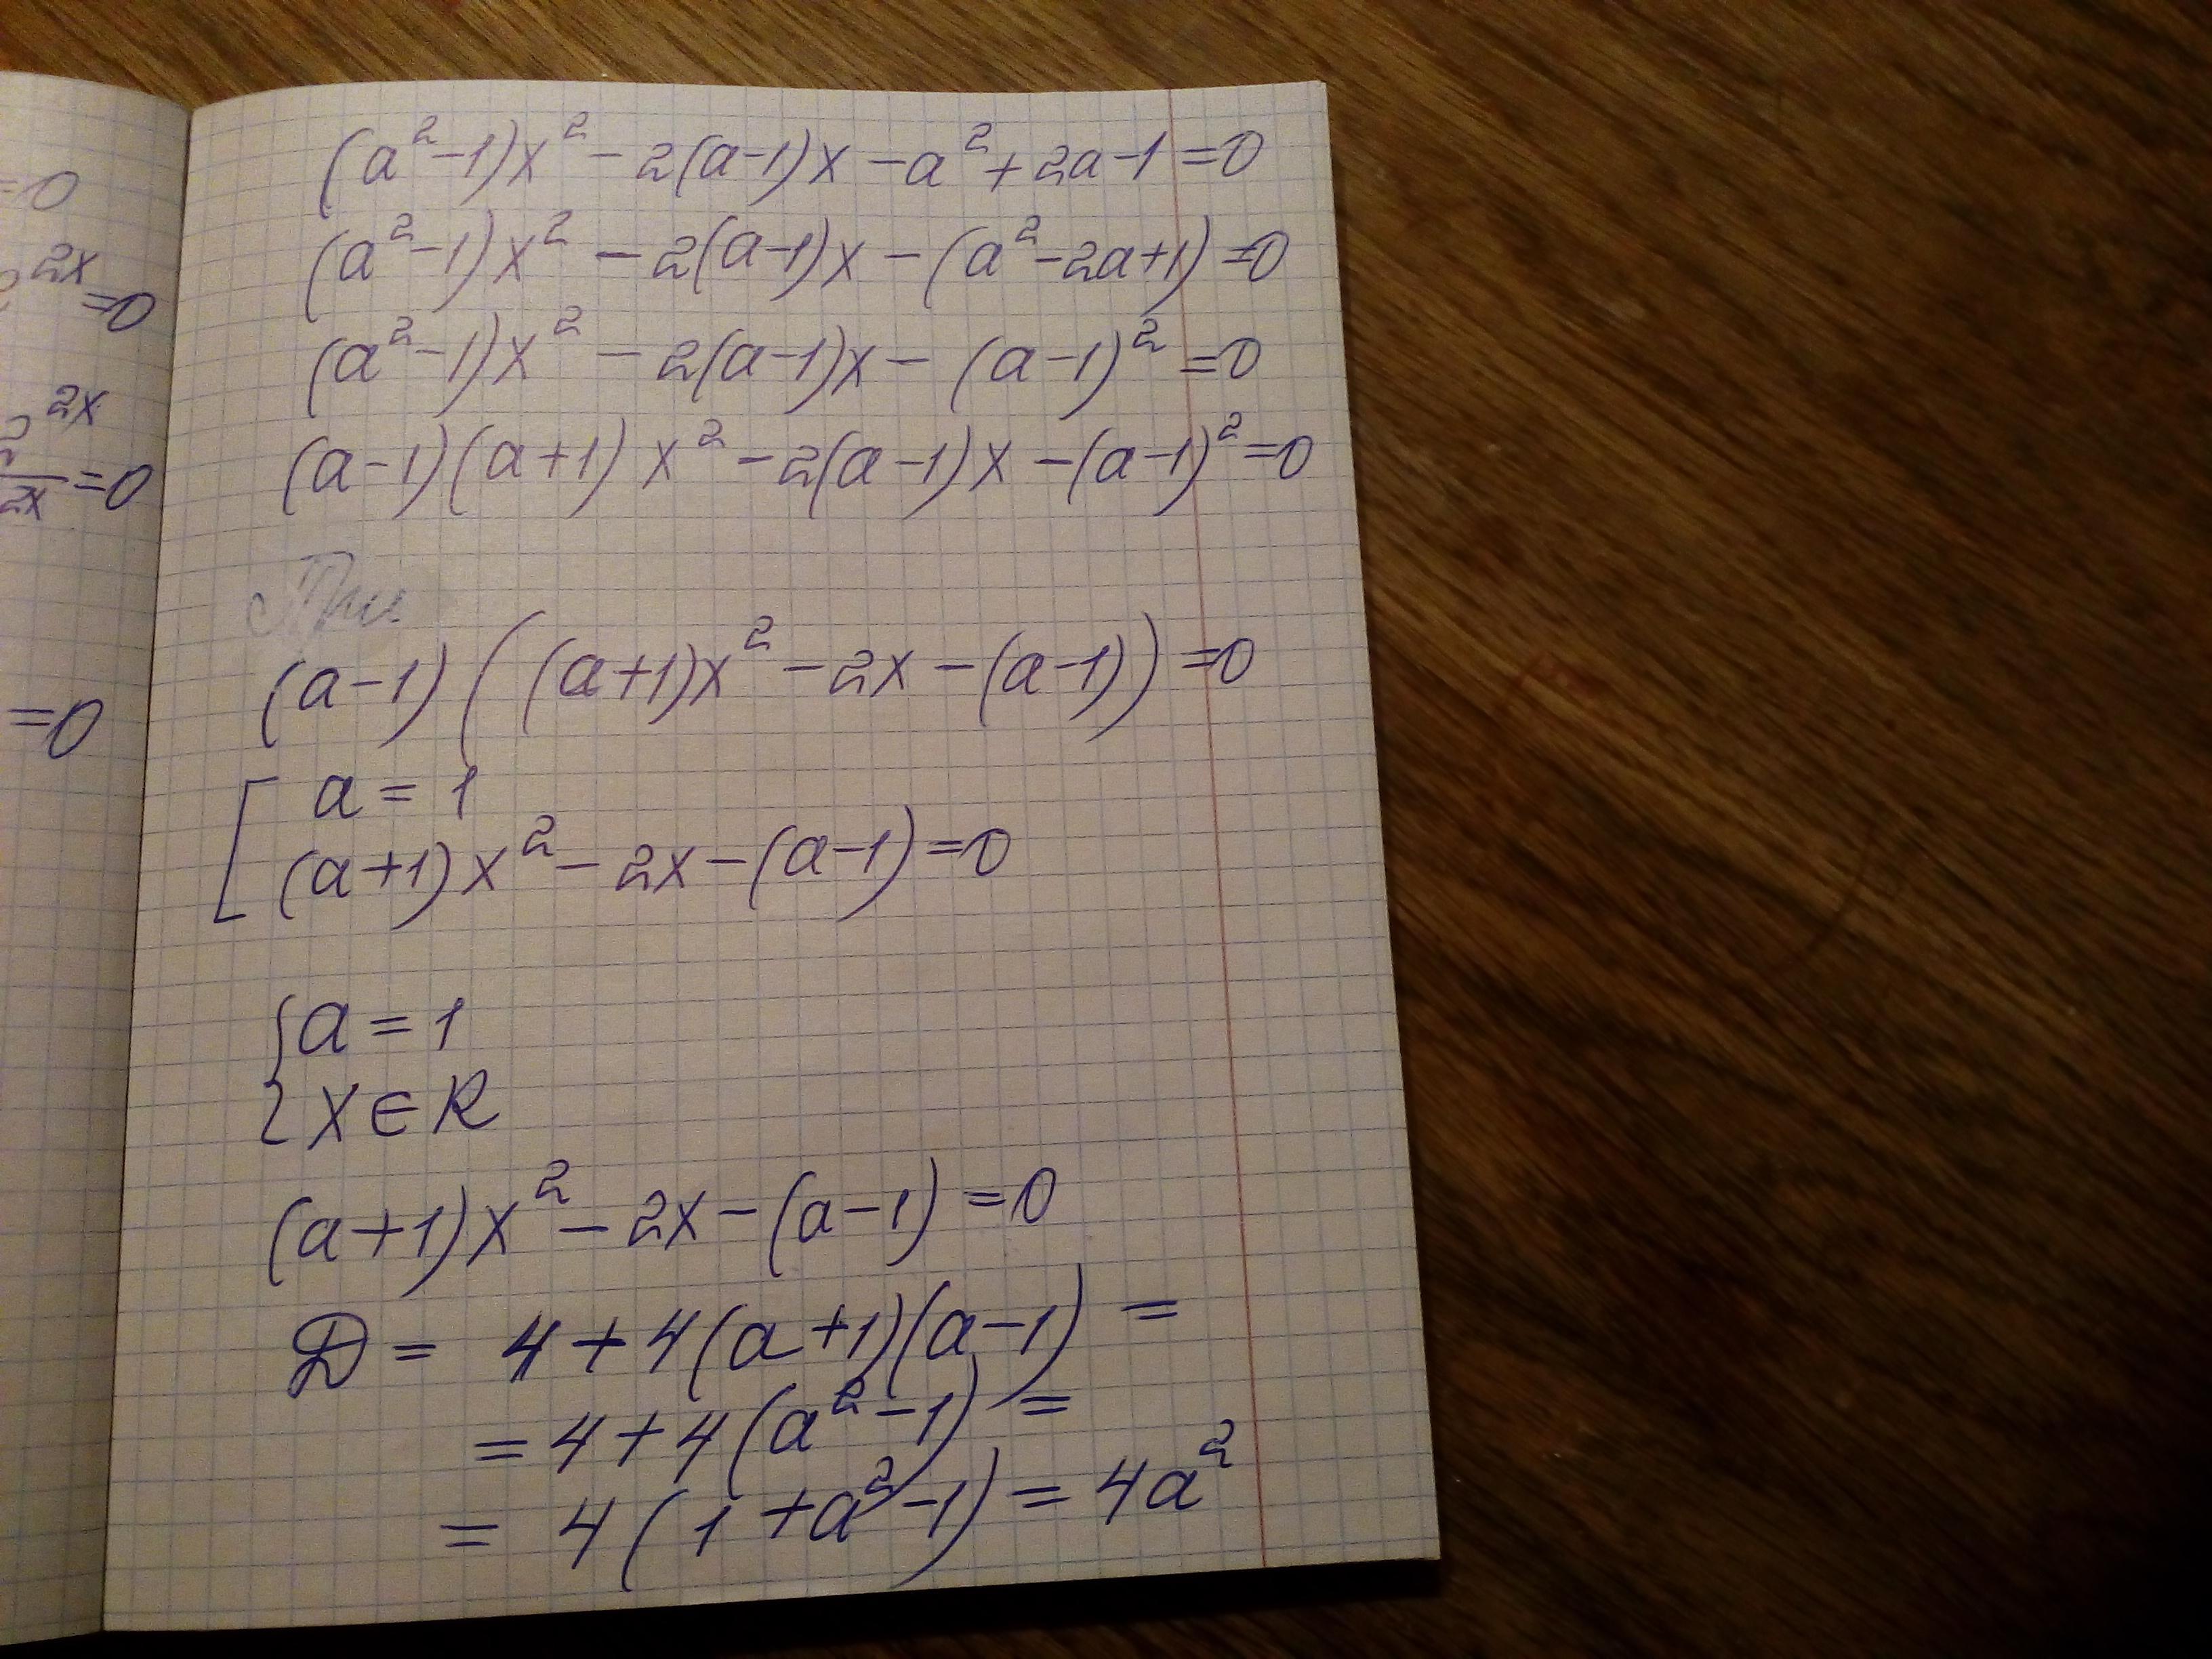 =0
2x
=0
2 2x
2x =0
=0
(a²-1)x² - 2(a-1)x - a² + 2a - 1 = 0
(a²-1)x² - 2(a-1)x - (a²-2a+1) = 0
(a²-1)x² - 2(a-1)x - (a-1)² = 0
(a-1)(a+1)x² - 2(a-1)x - (a-1)² = 0
При
(a-1)((a+1)x² - 2x - (a-1)) = 0
[ a = 1
(a+1)x² - 2x - (a-1) = 0
{ a = 1
x ∈ R
(a+1)x² - 2x - (a-1) = 0
D = 4 + 4(a+1)(a-1) =
= 4 + 4(a²-1) =
= 4(1 + a² - 1) = 4a²